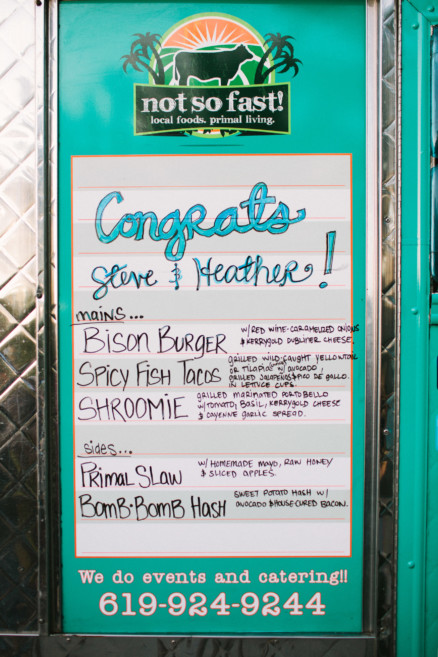 not so fast!
local foods. primal living.
Congrats
Steve & Heather!
mains...
BISON BURGER
W/ RED WINE-CARAMELIZED ONIONS
& KERRYGOLD DUBLINER CHEESE.
SPICY FISH TACOS
GRILLED WILD-CAUGHT YELLOWTAIL
OR TILAPIA W/ AVOCADO,
GRILLED JALAPEÑOS & PICO DE GALLO.
IN LETTUCE CUPS.
SHROOMIE
GRILLED MARINATED PORTOBELLO
W/ TOMATO, BASIL, KERRYGOLD CHEESE
& CAYENNE GARLIC SPREAD.
sides...
PRIMAL SLAW
W/ HOMEMADE MAYO, RAW HONEY
& SLICED APPLES.
BOMB-BOMB HASH
SWEET POTATO HASH W/
AVOCADO & HOUSE-CURED BACON.
We do events and catering!!
619-924-9244